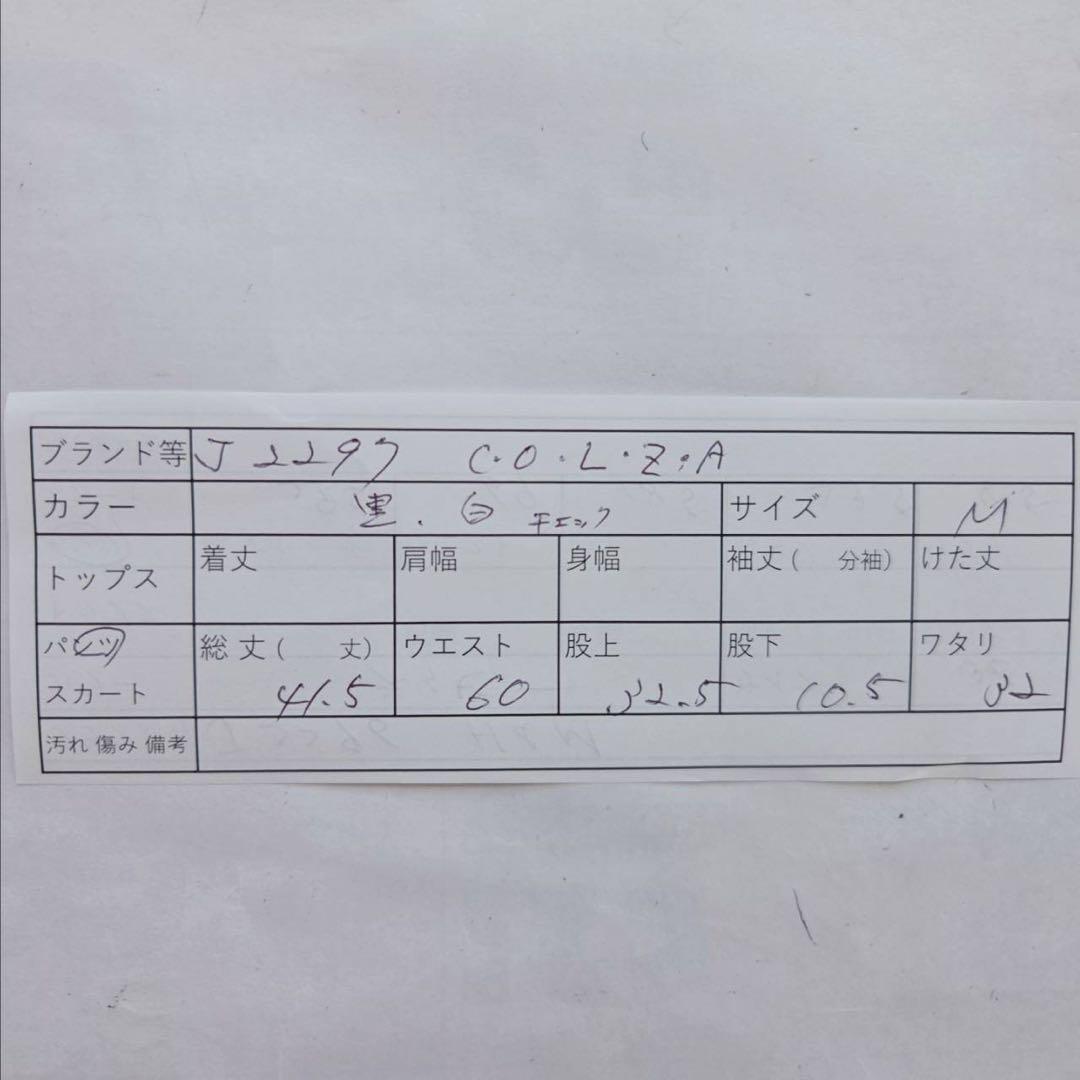 ブランド等 J2297 C・O・L・Z・A
カラー 黒.白 チェック サイズ M
トップス 着丈 肩幅 身幅 袖丈( 分袖) けた丈
パンツ 総丈( 丈) ウエスト 股上 股下 ワタリ
スカート 41.5 60 32.5 10.5 32
汚れ 傷み 備考